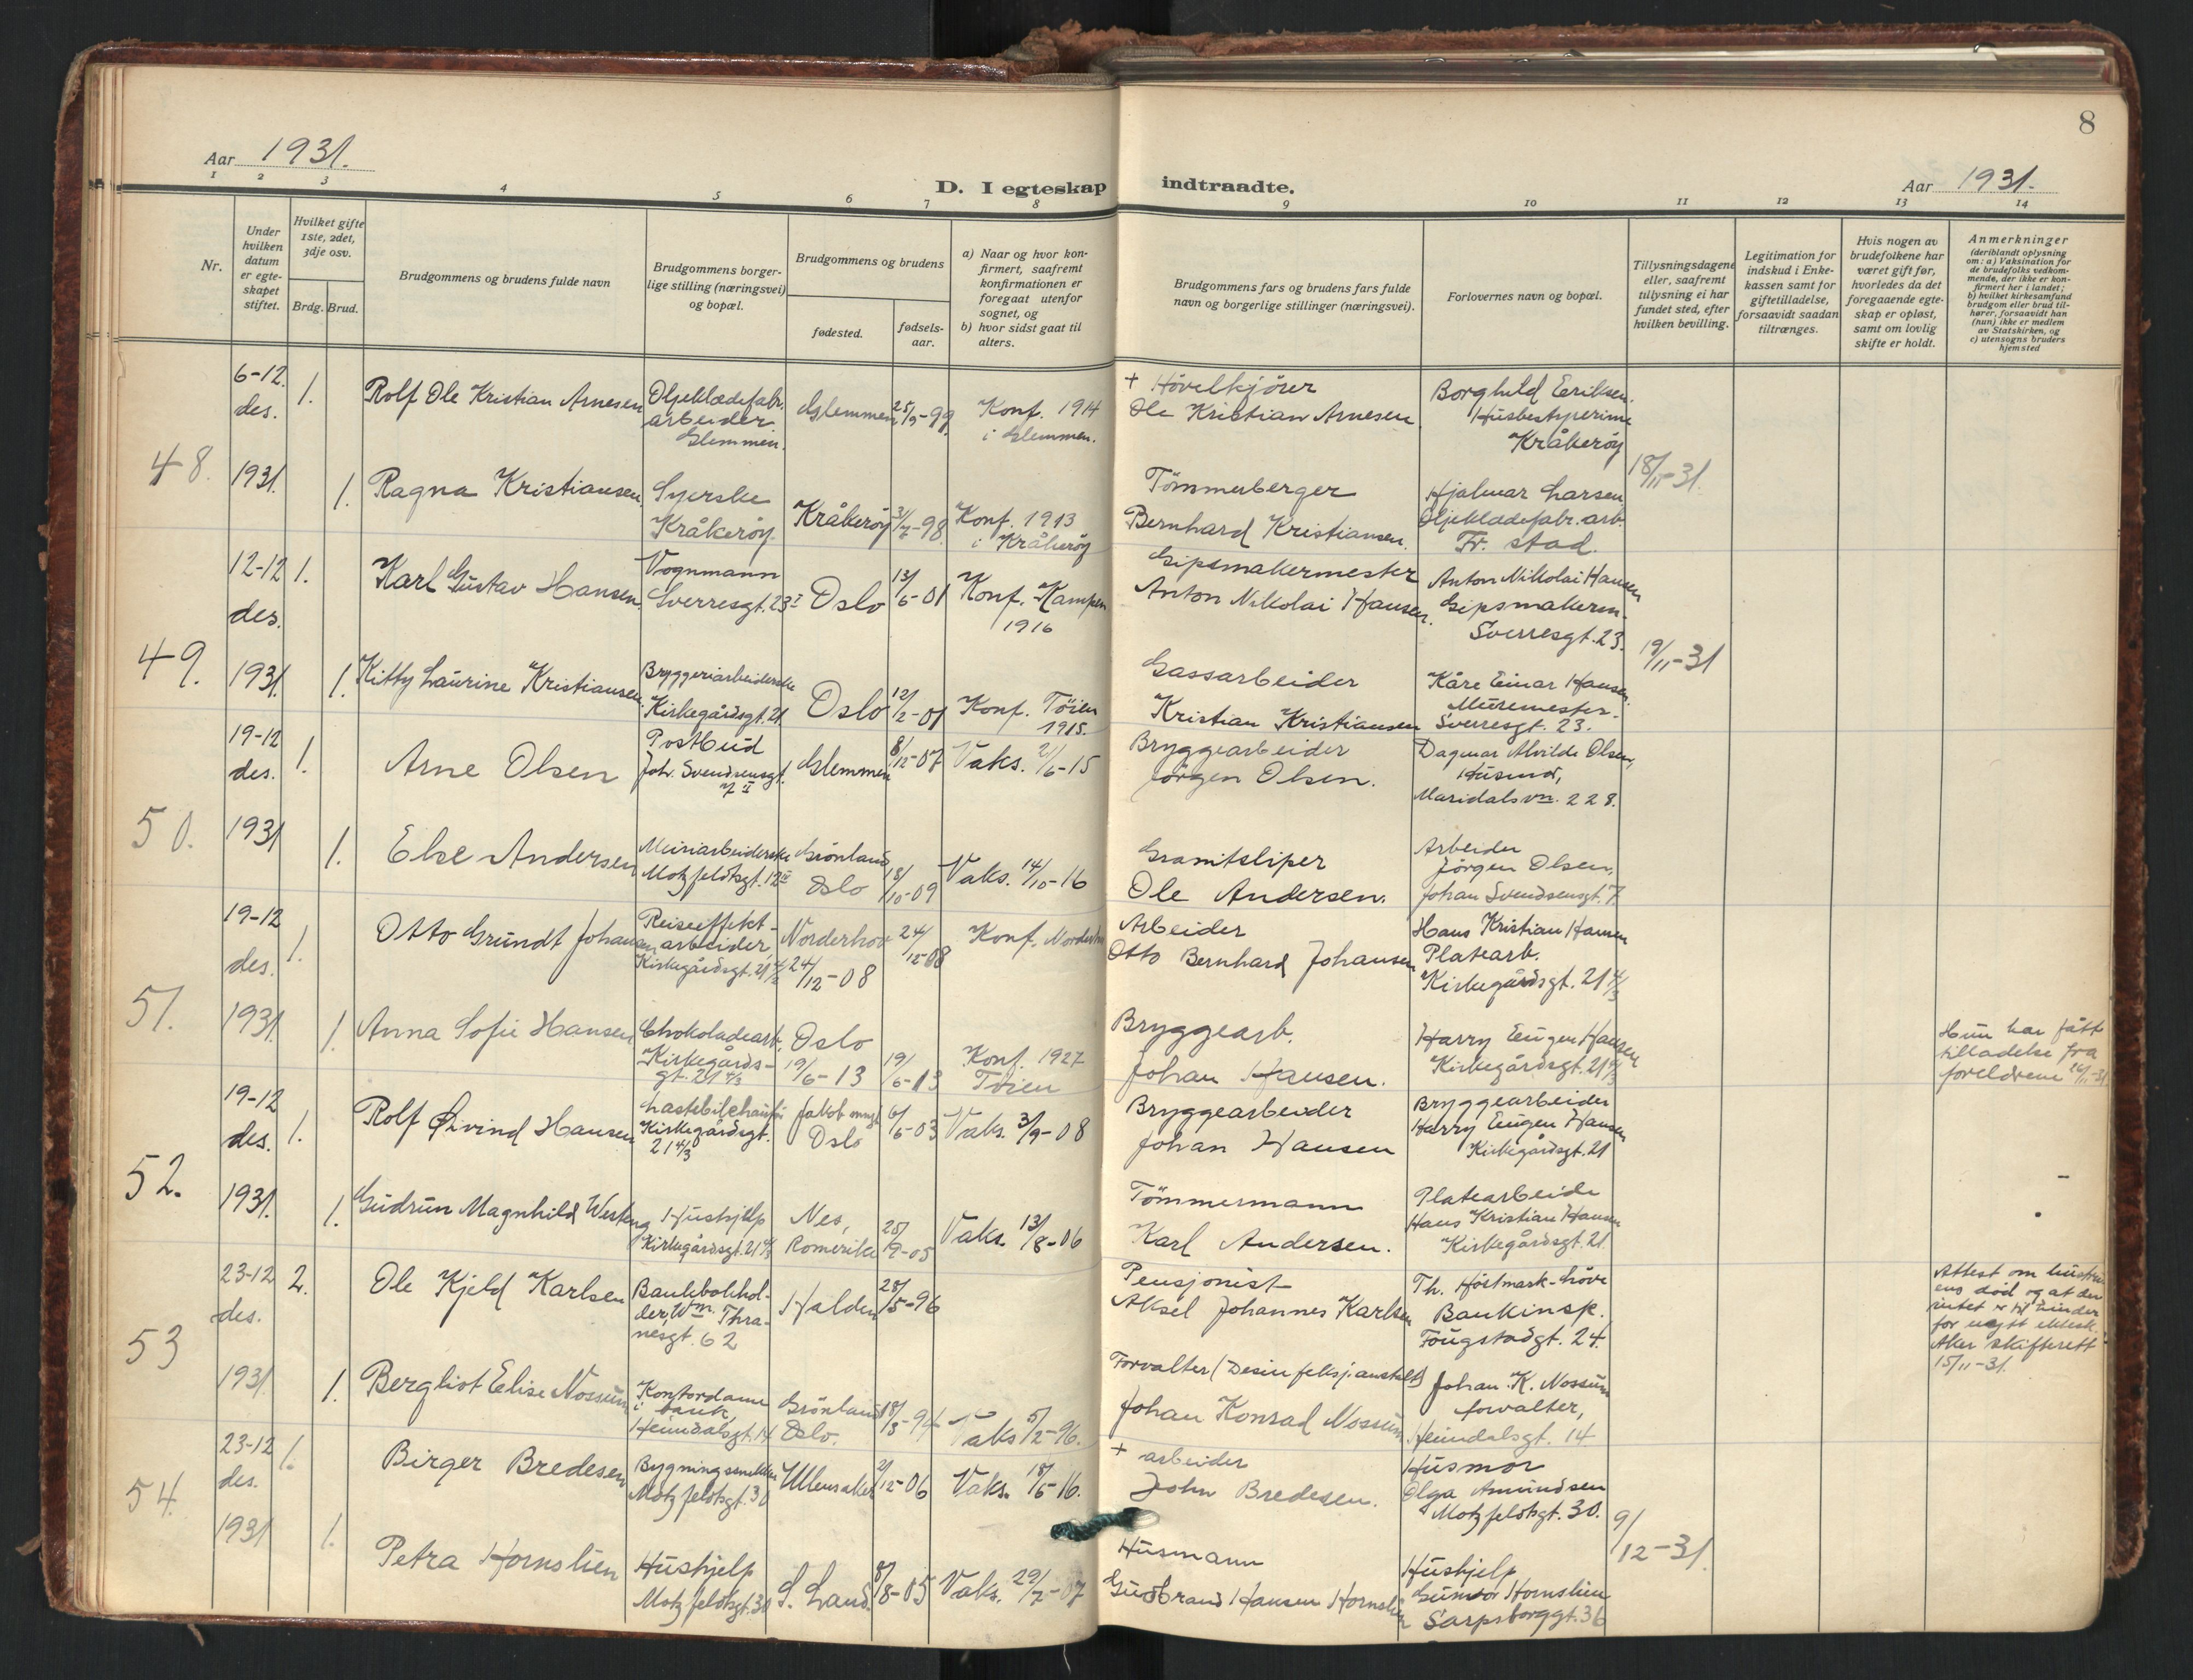 8
Aar 1931.
D. I egteskap indtraadte.
Aar 1931.
1 2 3 4 5 6 7 8 9 10 11 12 13 14
Nr.
Under hvilken datum er egteskapet stiftet.
Hvilket gifte 1ste, 2det, 3dje osv.
Brdg. Brud.
Brudgommens og brudens fulde navn
Brudgommens borgerlige stilling (næringsvei) og bopæl.
Brudgommens og brudens
fødested.
fødselsaar.
a) Naar og hvor konfirmert, saafremt konfirmationen er foregaat utenfor sognet, og
b) hvor sidst gaat til alters.
Brudgommens fars og brudens fars fulde navn og borgerlige stillinger (næringsvei).
Forlovernes navn og bopæl.
Tillysningsdagene eller, saafremt tillysning ei har fundet sted, efter hvilken bevilling.
Legitimation for indskud i Enkekassen samt for giftetilladelse, forsaavidt saadan tiltrænges.
Hvis nogen av brudefolkene har været gift før, hvorledes da det foregaaende egteskap er opløst, samt om lovlig skifte er holdt.
Anmerkninger (deriblandt oplysning om: a) Vaksination for de brudefolks vedkommende, der ikke er konfirmert her i landet; b) hvilket kirkesamfund brudgom eller brud tilhører, forsaavidt han (hun) ikke er medlem av Statskirken, og c) utensogns bruders hjemsted
48. 6-12. des. 1931.
1. Rolf Ole Kristian Arnesen Oljeklædefabr. arbeider Glemmen. Glemmen 25/5-99. Konf. 1914 i Glemmen. + Hövelkjörer Ole Kristian Arnesen Borghild Eriksen. Husbestyrerinne Kråkeröy
18/11-31.
1. Ragna Kristiansen Syerske Kråkeröy. Kråkeröy 31/7-98. Konf. 1913 i Kråkeröy Tömmerberger Bernhard Kristiansen. Hjalmar Larsen Oljeklædefabr. arb. Fr. stad.
49. 12-12 des. 1931.
1. Karl Gustav Hansen. Vognmann Sverresgt. 23 I Oslo 13/6-01 Konf. Kampen 1916 Gipsmakermester Anton Nikolai Hansen. Anton Nikolai Hansen Gipsmakerm. Sverresgt. 23.
19/11-31
1. Kitty Laurine Kristiansen. Bryggeriarbeiderske Kirkegårdsgt. 21. Oslo 12/2-01 Konf. Töien 1915. Gassarbeider Kristian Kristiansen Kåre Einar Hansen. Muremester. Sverresgt. 23.
50. 19-12 des. 1931
1. Arne Olsen Postbud Joh. Svendsensgt. 7 II Glemmen 8/12-07 Vaks. 2/6-15 Bryggearbeider Jörgen Olsen. Dagmar Alvilde Olsen, Husmor, Maridalsvn. 228.
1. Else Andersen Meieriarbeiderske Motzfeldtsgt. 12 II Grönland Oslo 18/10-09 Vaks. 14/10-16 Granitsliper Ole Andersen. Arbeider Jörgen Olsen, Johan Svendsensgt. 7.
51. 19-12 des. 1931.
1. Otto Grundt Johansen Reiseeffektarbeider, Kirkegårdsgt. 21 4/2 Norderhov 24/12-08 24/12-08 Konf. Norderhov Arbeider Otto Bernhard Johansen Hans Kristian Hansen Platearb. Kirkegårdsgt. 21 4/3
1. Anna Sofie Hansen Chokoladearb. Kirkegårdsgt. 21 4/3 Oslo 19/6-13 19/6-13 Konf. 1927 Töien Bryggearb. Johan Hansen. Harry Eugen Hansen Kirkegårdsgt. 21 4/3 Hun har fått tilladelse fra foreldrene 26/11-31
52. 19-12 des. 1931.
1. Rolf Øivind Hansen Lastebilchaufför Kirkegårdsgt. 21 4/3 Jakob Oslo 6/6-03 Vaks. 3/9-08 Bryggearbeider Johan Hansen Bryggearbeider Harry Eugen Hansen Kirkegårdsgt. 21
1. Gudrun Magnhild Westeng Hushjelp Kirkegårdsgt. 21 4/3 Nes, Romerike 25/9-05 Vaks. 13/8-06 Tömmermann Karl Andersen. Platearbeide Hans Kristian Hansen Kirkegårdsgt. 21.
53 23-12 des. 1931.
2. Ole Kjeld Karlsen Bankbokholder, Wm. Thranesgt. 62 Halden 28/5-96 Pensjonist Aksel Johannes Karlsen Th. Höstmark-höve Bankinsp. Fougstadgt. 24. Attest om hustruens död og at der intet er til hinder for nytt ektesk. Aker skifterett 15/11-31.
1. Bergliot Elise Nossum Kontordame i bank, Heimdalsgt. 14 Grönland Oslo. 18/3-94 Vaks 5/2-96. Forvalter (Desinfeksj. anstalt) Johan Konrad Nossum Johan. K. Nossum forvalter, Heimdalsgt. 14
54. 23-12 des. 1931
1. Birger Bredesen Bygningssnekker Motzfeldtsgt. 30 Ullensaker 2/12-06 Vaks. 18/5-16. + arbeider John Bredesen. Husmor Olga Amundsen Motzfeldtsgt. 30.
9/12-31.
1. Petra Hornslien Hushjelp Motzfeldtsgt. 30 S. Land. 8/8-05 Vaks. 29/7-07 Husmann Gudbrand Hansen Hornslien Hushjelp Gunvor Hornslien Sarpsborggt. 36